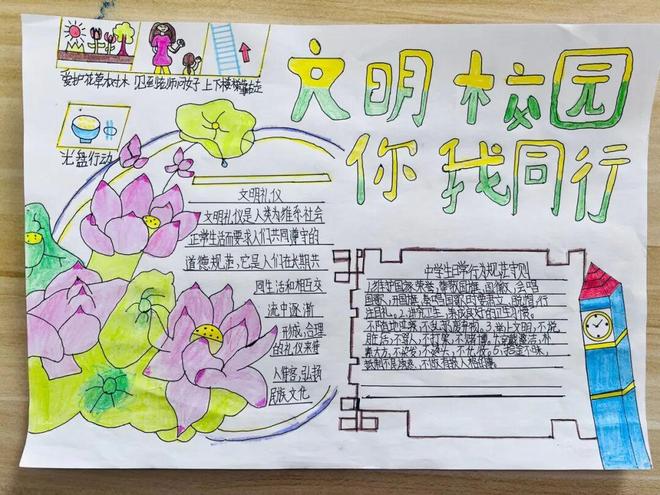 文明校园
你我同行
爱护花草树木 见到老师问好 上下楼梯靠右走
光盘行动
文明礼仪
文明礼仪是人类为维系社会
正常生活而要求人们共同遵守的
道德规范,它是人们在长期共
同生活和相互交
流中逐渐
形成,合理
的礼仪来待
人待客,弘扬
民族文化
中学生日常行为规范守则
1.维护国家荣誉,尊敬国旗,国徽,会唱
国歌,升国旗,奏唱国歌时要肃立,脱帽,行
注目礼。2.讲究卫生,养成良好的卫生习惯。
不随地吐痰,不乱扔废弃物。3.举止文明,不说
脏话,不骂人,不打架,不赌博。